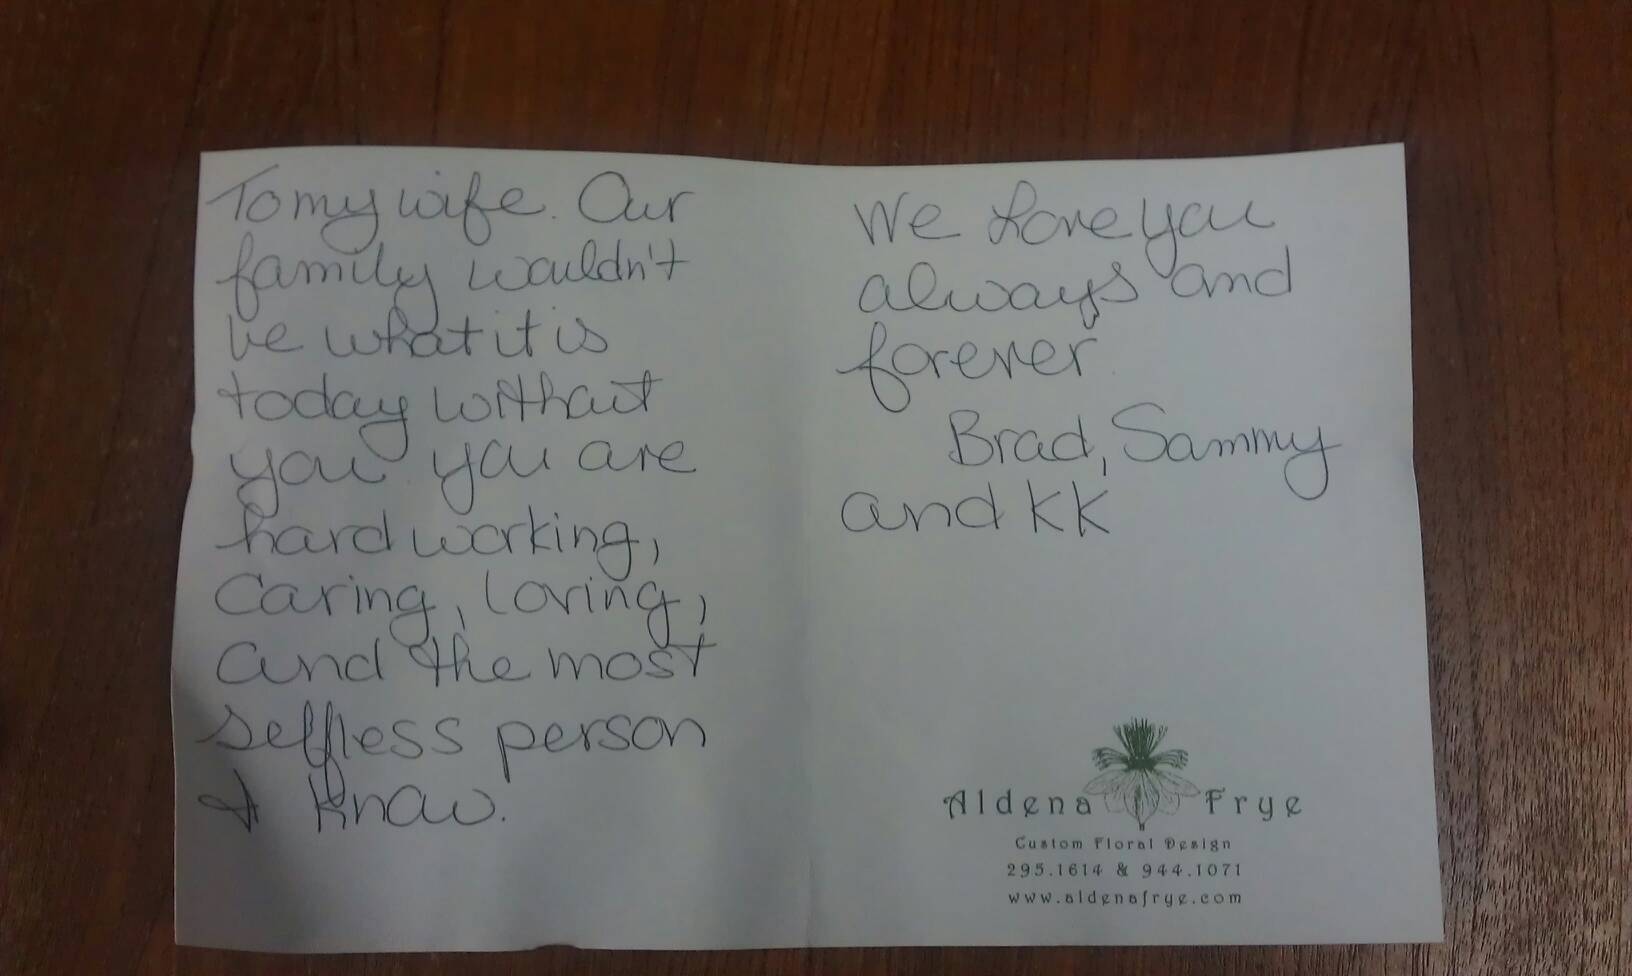 To my wife. Our
family wouldn't
be what it is
today without
you you are
hard working,
caring, loving,
and the most
selfless person
I know.
We Love you
always and
forever.
Brad, Sammy
and KK
Aldena Frye
Custom Floral Design
295.1614 & 944.1071
www.aldenafrye.com